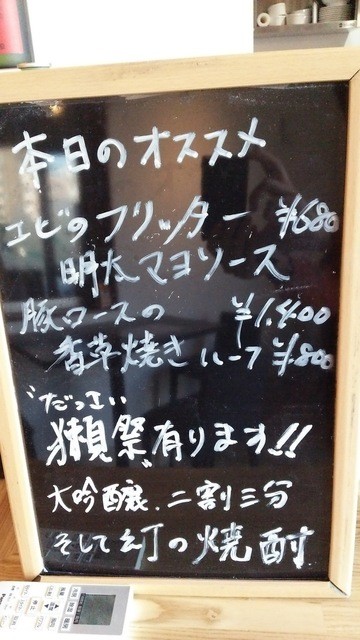 本日のオススメ
エビのフリッター ¥680
明太マヨソース
豚ロースの ¥1.400
香草焼き ハーフ ¥800
"だっさい
獺祭"有ります!!
大吟醸.二割三分
そして幻の焼酎